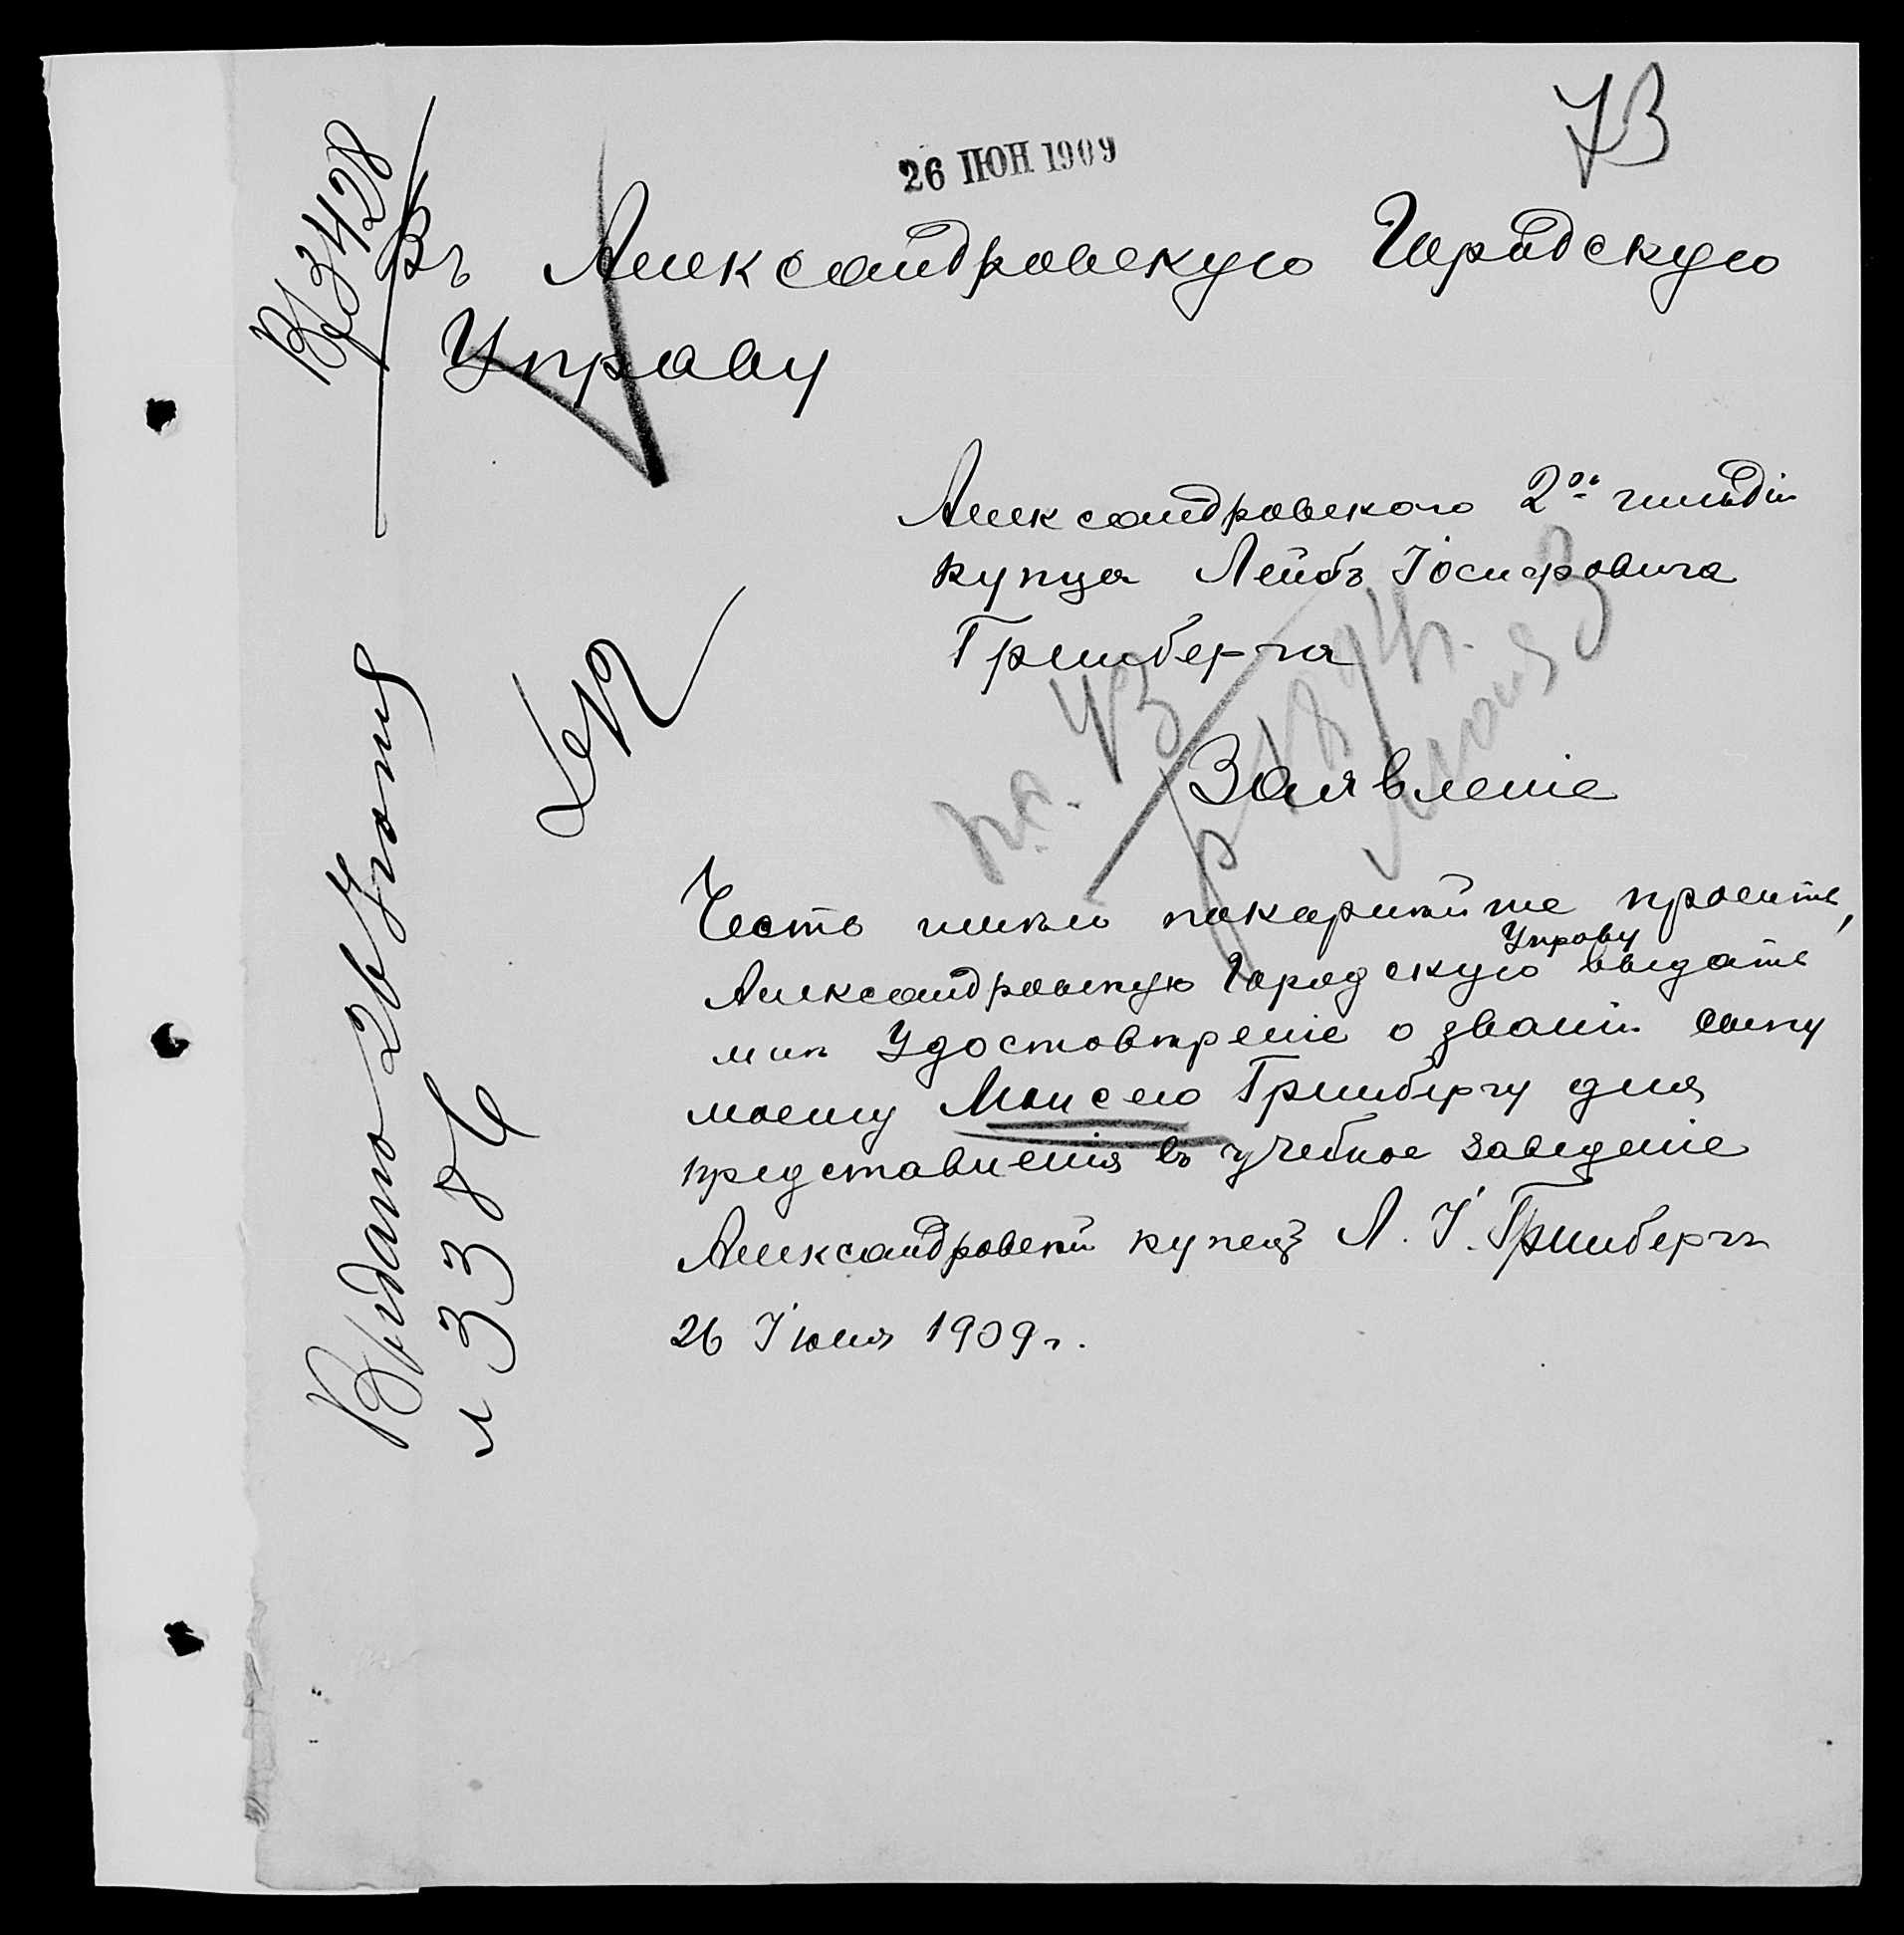 73
26 ІЮН 1909
Вх 3428
Въ Александровскую Городскую
Управу
Александровскаго 2ой гильдіи
купца Лейбъ Іосифовича
Гринберга
Заявленіе
Честь имѣю покорнѣйше просить,
Управу
Александровскую Городскую выдать
мнѣ Удостовѣреніе о званіи сыну
моему Моисею Гринбергу для
представленія въ учебное заведеніе
Александровскій купецъ Л. І. Гринбергъ
26 Іюня 1909 г.
Выдано 26 Іюня
№ 3386